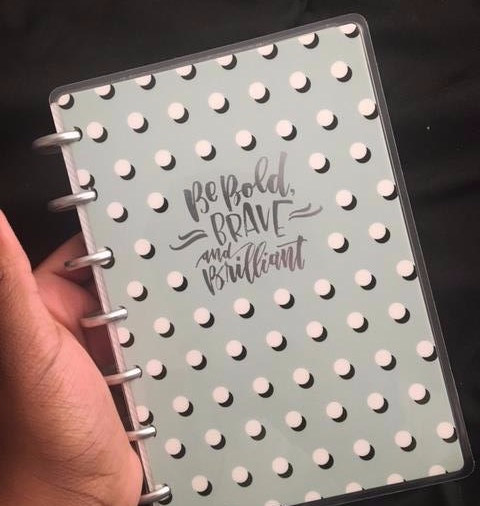 Be Bold,
BRAVE
and
Brilliant